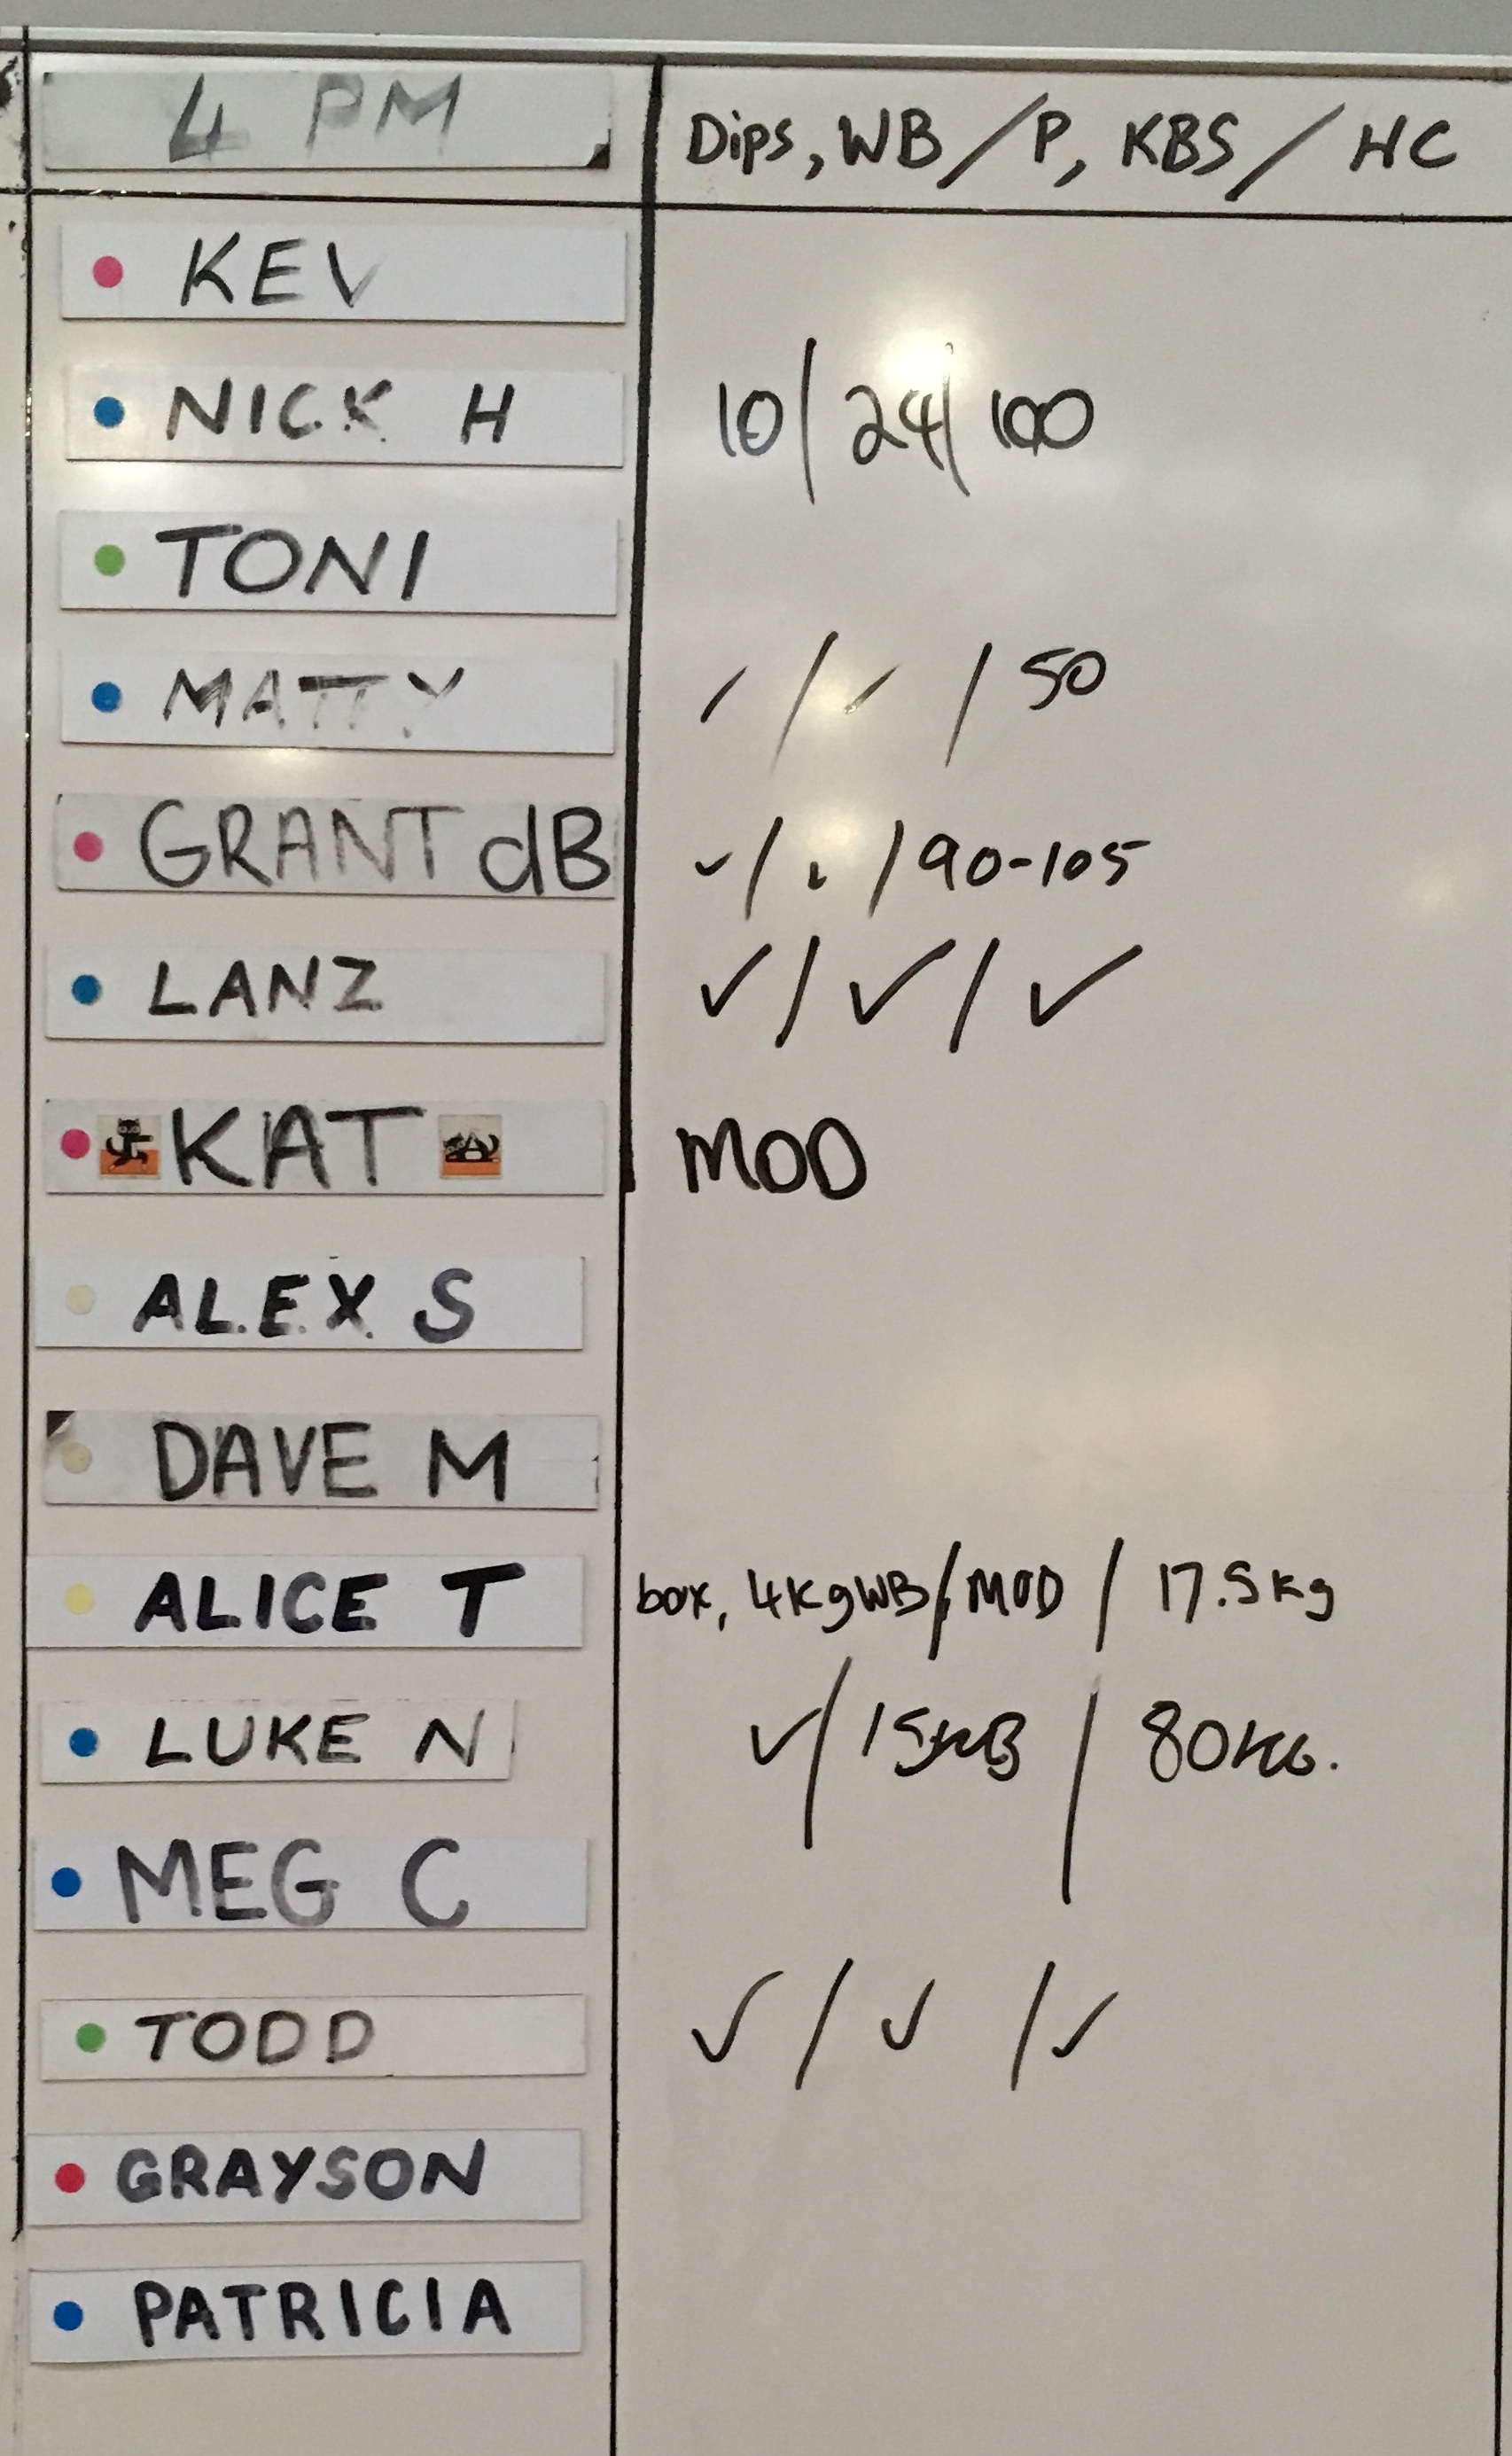 4 PM Dips, WB / P, KBS / HC
KEV
NICK H 10 / 24 / 100
TONI
MATTY ✓ / ✓ / 50
GRANT dB ✓ / ✓ / 90-105
LANZ ✓ / ✓ / ✓
KAT MOD
ALEX S
DAVE M
ALICE T box, 4KgWB / MOD / 17.5Kg
LUKE N ✓ / / 80KG.
MEG C
TODD ✓ / ✓ / ✓
GRAYSON
PATRICIA